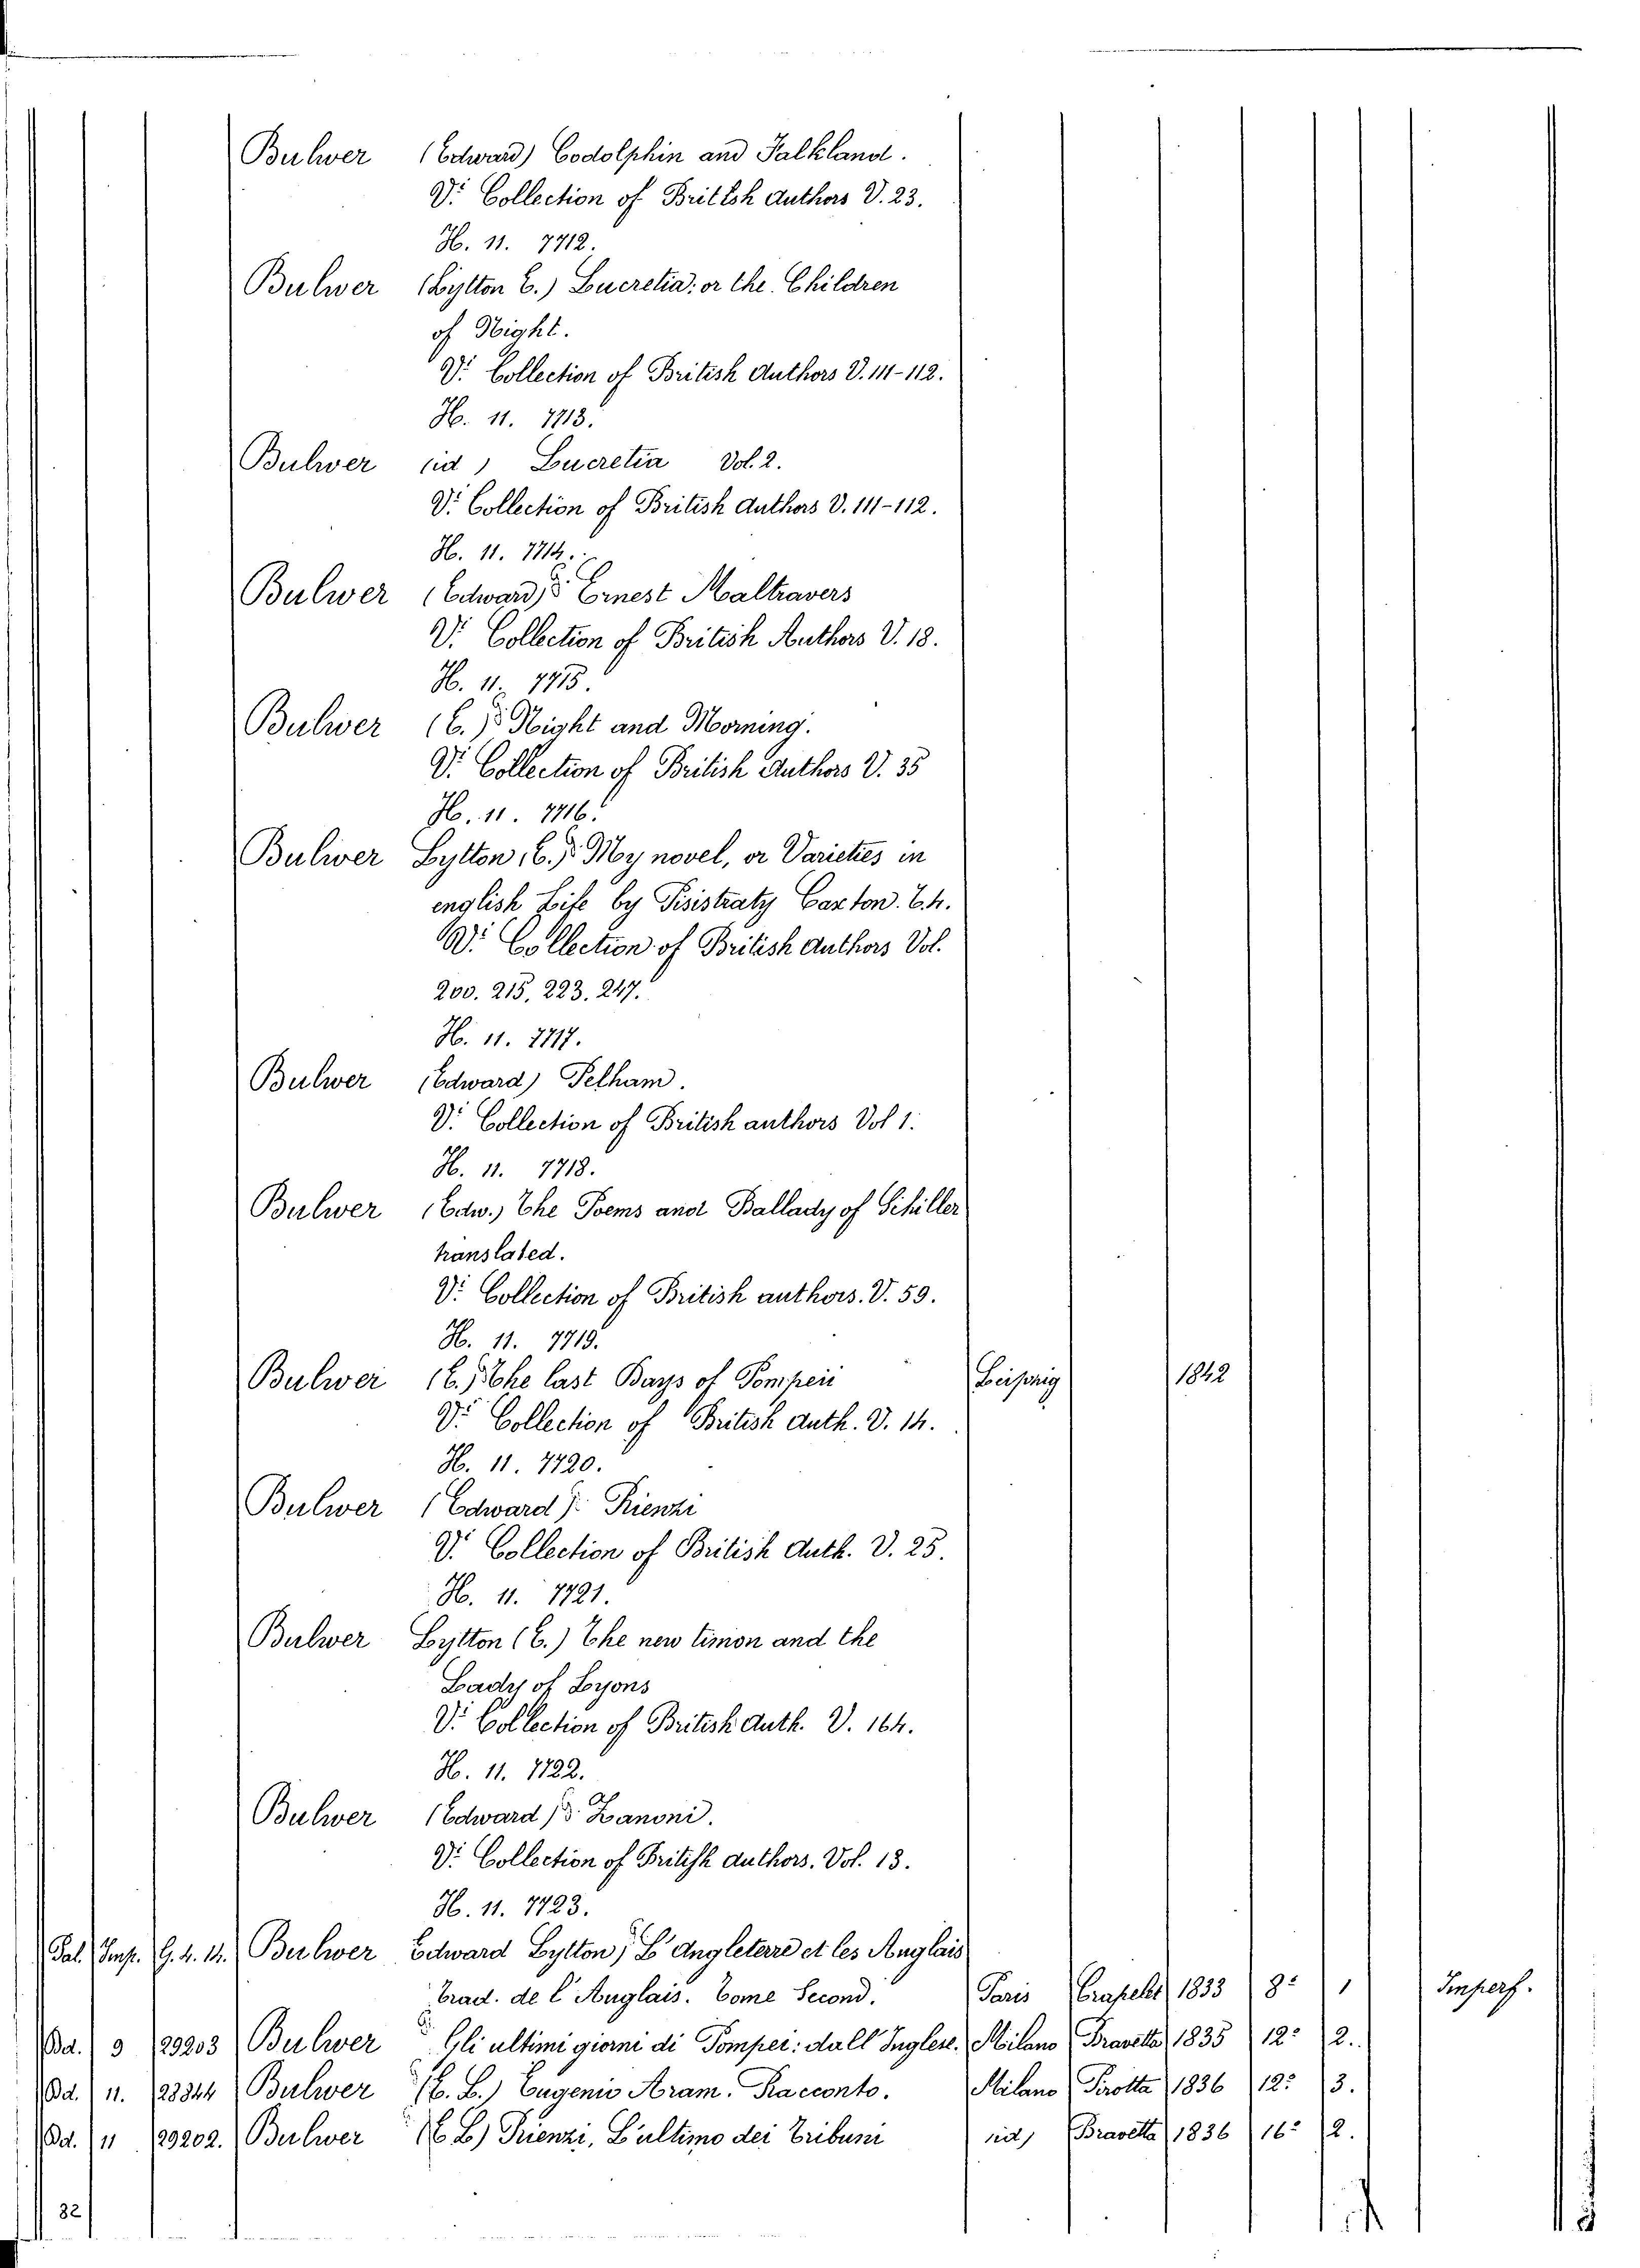 Bulwer (Edward) Godolphin and Falkland.
V: Collection of British Authors V. 23.
H. 11. 7712.
Bulwer (Lytton E.) Lucretia: or the Children
of Night.
V: Collection of British Authors V. 111-112.
H. 11. 7713.
Bulwer (id) Lucretia Vol. 2.
V: Collection of British Authors V. 111-112.
H. 11. 7714.
Bulwer (Edward) Ernest Maltravers
V: Collection of British Authors V. 18.
H. 11. 7715.
Bulwer (E.) Night and Morning.
V: Collection of British Authors V. 35
H. 11. 7716.
Bulwer Lytton (E.) My novel, or Varieties in
english Life by Pisistraty Caxton. T. 4.
V: Collection of British Authors Vol.
200. 215. 223. 247.
H. 11. 7717.
Bulwer (Edward) Pelham.
V: Collection of British authors Vol 1.
H. 11. 7718.
Bulwer (Edw.) The Poems and Ballady of Schiller
translated.
V: Collection of British authors. V. 59.
H. 11. 7719.
Bulwer (E.) The last Days of Pompeii Leipzig 1842
V: Collection of British Auth. V. 14.
H. 11. 7720.
Bulwer (Edward) Rienzi
V: Collection of British Auth. V. 25.
H. 11. 7721.
Bulwer Lytton (E.) The new timon and the
Lady of Lyons
V: Collection of British Auth. V. 164.
H. 11. 7722.
Bulwer (Edward) Zanoni.
V: Collection of British Authors. Vol. 13.
H. 11. 7723.
Pal. Imp. G. 4. 14. Bulwer Edward Lytton) L'Angleterre et les Anglais
Trad. de l'Anglais. Tome Second. Paris Crapelet 1833 8: 1 Imperf.
Pal. 9 29203 Bulwer Gli ultimi giorni di Pompei: dall'Inglese. Milano Bravetta 1835 12: 2.
Pal. 11. 28344 Bulwer (E. L.) Eugenio Aram. Racconto. Milano Pirotta 1836 12: 3.
Pal. 11 29202. Bulwer (E. L) Rienzi, L'ultimo dei Tribuni (id) Bravetta 1836 16: 2.
32